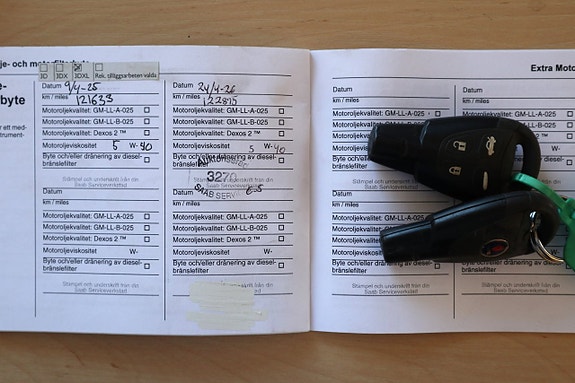 je- och motoroljefilterbyte
3D
3DX
3DXL
Rek. tilläggsarbeten valda
e-
byte
er ett med-
strument-
Datum 9/4-25
km / miles 121633
Motoroljekvalitet: GM-LL-A-025
Motoroljekvalitet: GM-LL-B-025
Motoroljekvalitet: Dexos 2 ™
Motoroljeviskositet 5 W-40
Byte och/eller dränering av diesel-
bränslefilter
Stämpel och underskrift från din
Saab Serviceverkstad
Datum
km / miles
Motoroljekvalitet: GM-LL-A-025
Motoroljekvalitet: GM-LL-B-025
Motoroljekvalitet: Dexos 2 ™
Motoroljeviskositet W-
Byte och/eller dränering av diesel-
bränslefilter
Stämpel och underskrift från din
Saab Serviceverkstad
Datum 24/4-26
km / miles 122875
Motoroljekvalitet: GM-LL-A-025
Motoroljekvalitet: GM-LL-B-025
Motoroljekvalitet: Dexos 2 ™
Motoroljeviskositet 5 W-40
Byte och/eller dränering av diesel-
bränslefilter
3270
SAAB SERV
Datum
km / miles
Motoroljekvalitet: GM-LL-A-025
Motoroljekvalitet: GM-LL-B-025
Motoroljekvalitet: Dexos 2 ™
Motoroljeviskositet W-
Byte och/eller dränering av diesel-
bränslefilter
Stämpel och underskrift från din
Saab Serviceverkstad
Extra Moto
Datum
km / miles
Motoroljekvalitet: GM-LL-A-025
Motoroljekvalitet: GM-LL-B-025
Motoroljekvalitet: De
Motoroljeviskositet
Byte och/eller dr
bränslefilter
Datum
km / miles
Motoroljekvalitet: GM
Motoroljekvalitet
Motoroljekvalitet
Motoroljeviskositet
Byte och/eller dränering av diesel-
bränslefilter
Stämpel och underskrift från din
Saab Serviceverkstad
Datum
km / miles
Motoroljekvalitet: GM-LL-A-025
Motoroljekvalitet: GM-LL-B-025
Byte och/eller dränering av diesel-
bränslefilter
Stämpel och underskrift från din
Saab Serviceverkstad